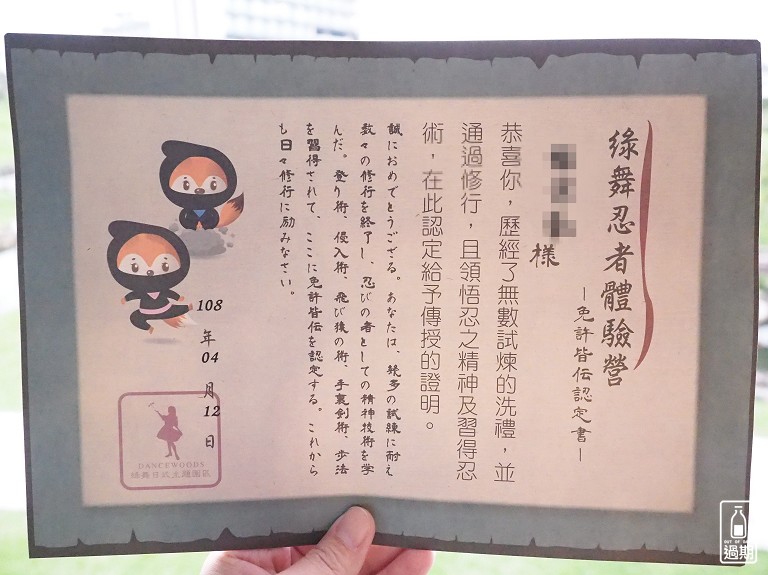 綠舞忍者體驗營
—免許皆伝認定書—
樣
恭喜你，歷經了無數試煉的洗禮，並
通過修行，且領悟忍之精神及習得忍
術，在此認定給予傳授的證明。
誠におめでとうござる。あなたは、幾多の試練に耐え
数々の修行を終了し、忍びの者としての精神技術を学
んだ。登り術、侵入術、飛び後の術、手裏剣術、歩法
を習得されて、ここに免許皆伝を認定する。これから
も日々修行に励みなさい。
108年04月12日
DANCEWOODS
綠舞日式主題園區
過期